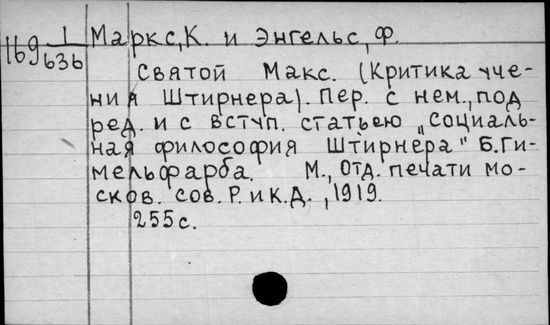 169 1/636 Маркс, К. и Энгельс, Ф.
Святой Макс. (Критика уче-
ния Штирнера). Пер. с нем., под
ред. и с вступ. статьею „Социаль-
ная философия Штирнера" Б. Ги-
мельфарба. М., Отд. печати мо-
сков. сов. Р. и К.Д., 1919.
255 с.